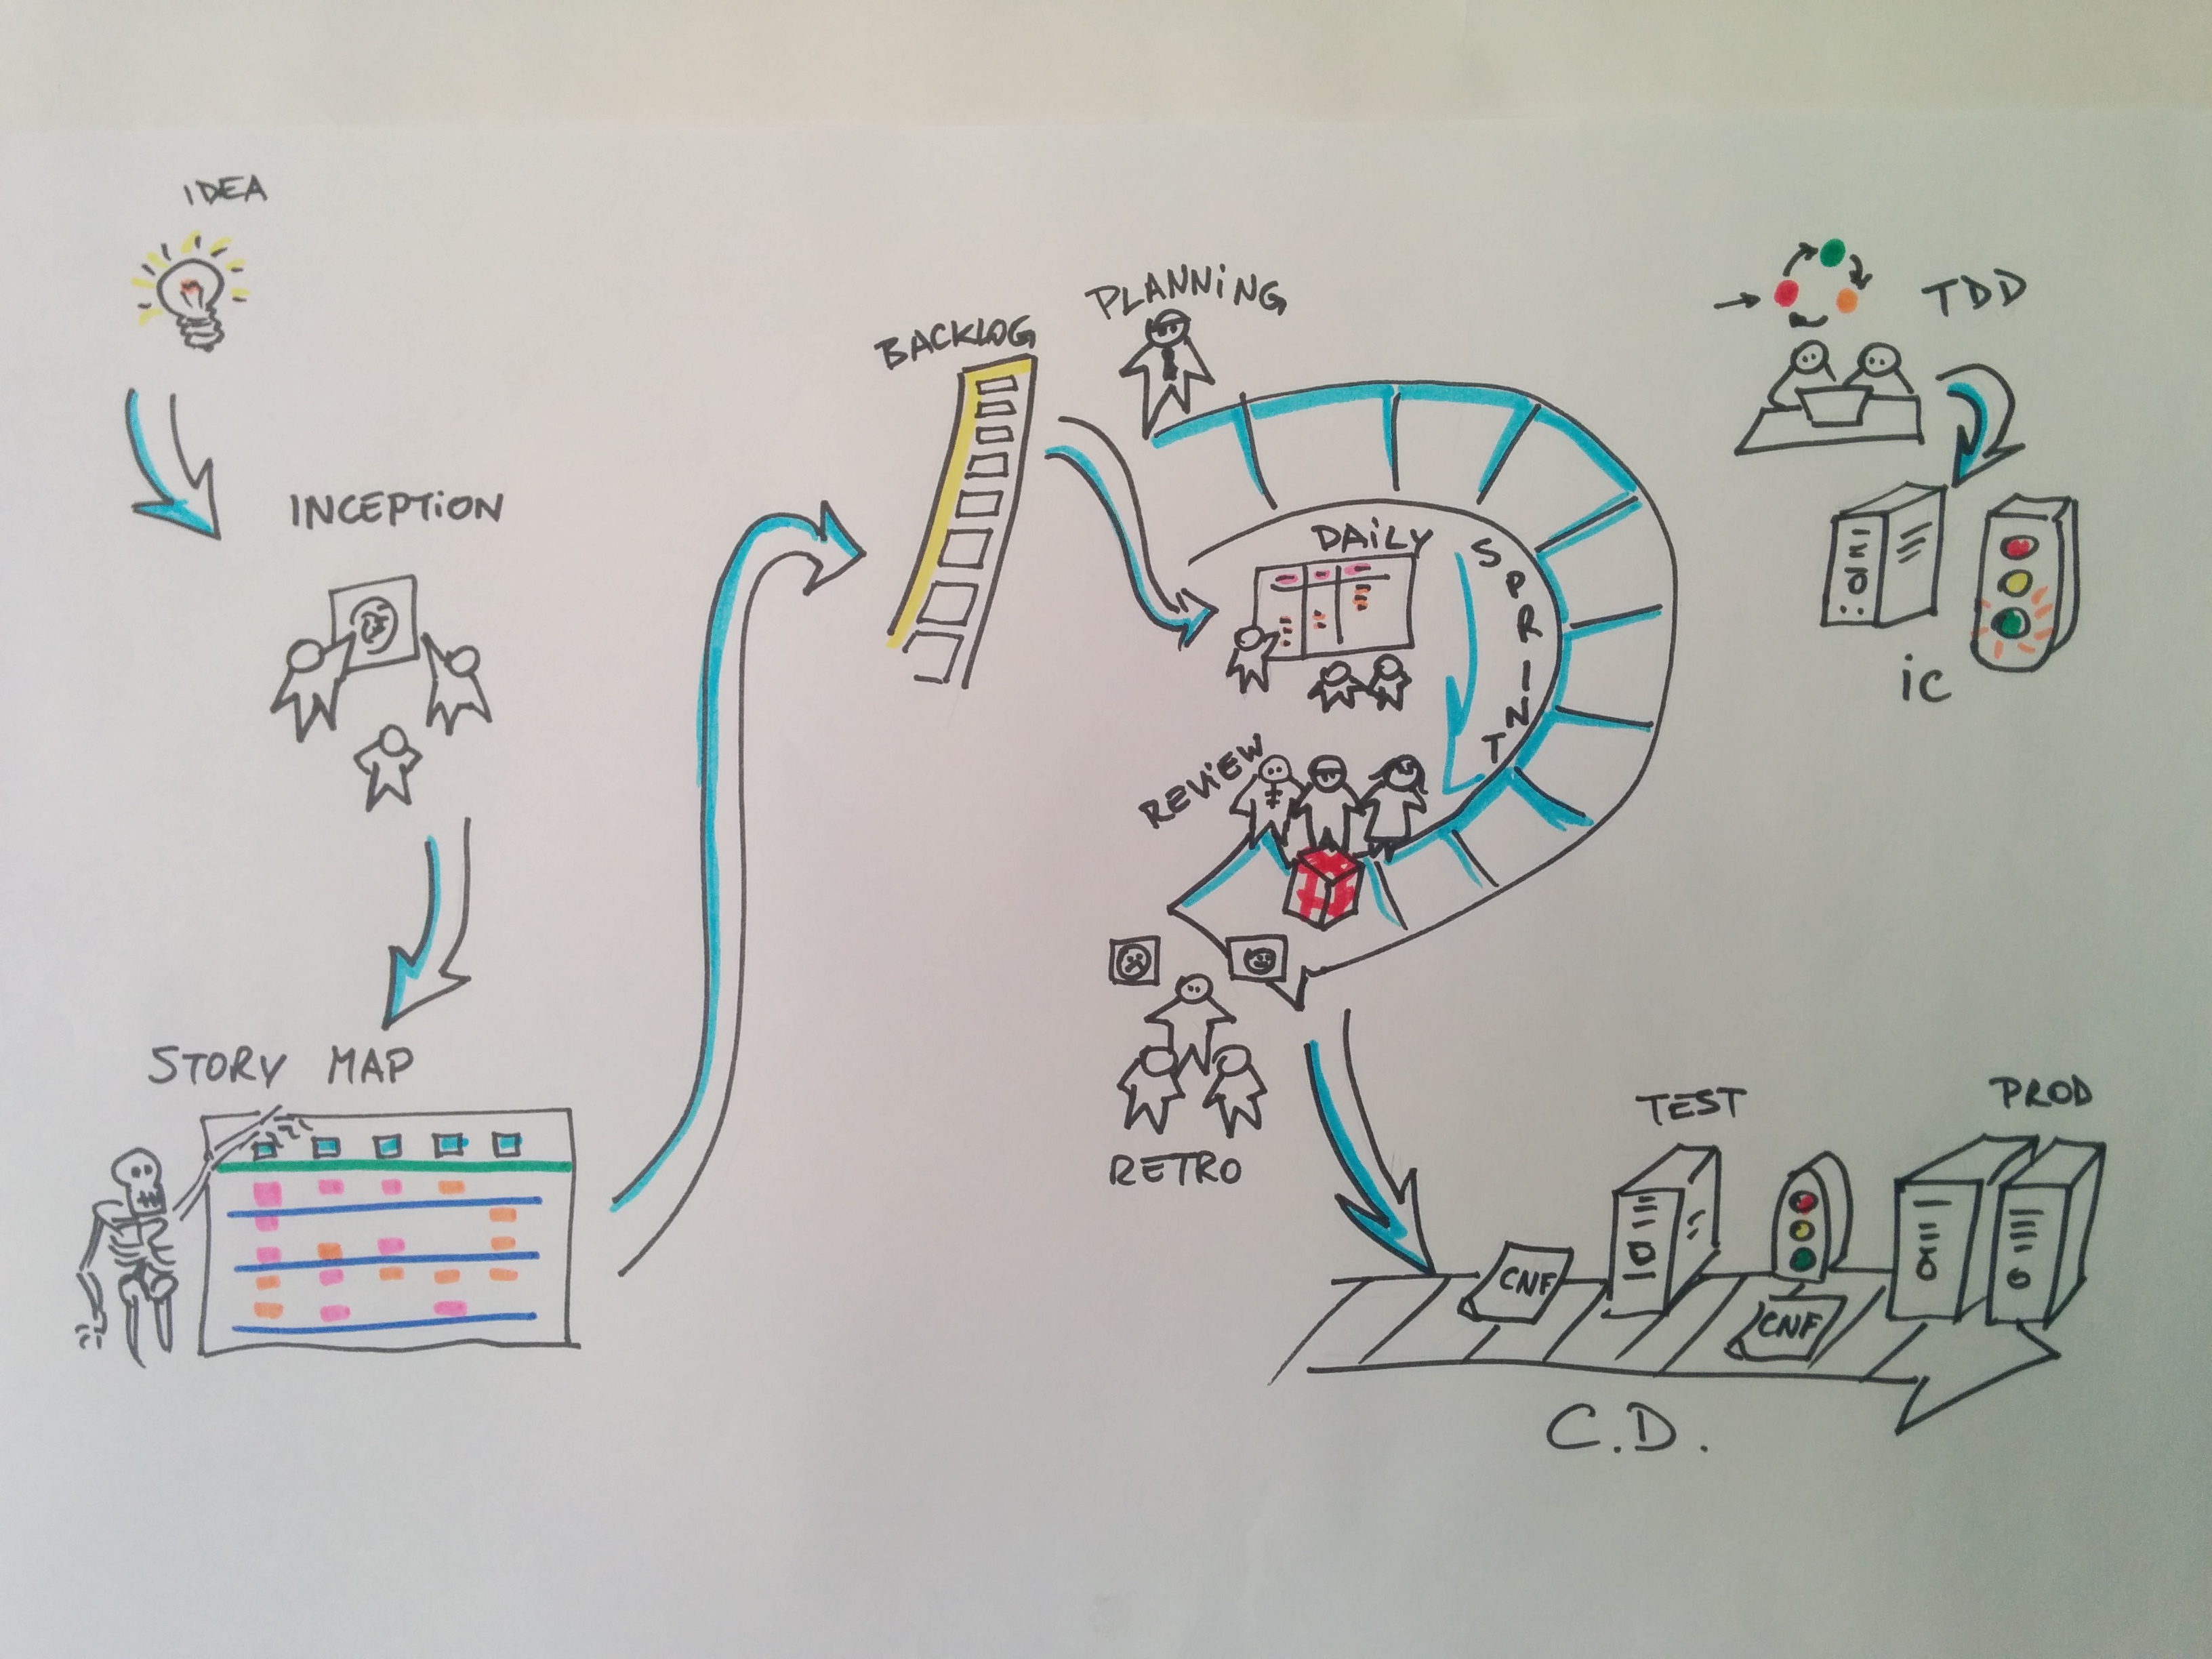 IDEA
INCEPTION
STORY MAP
BACKLOG
PLANNING
DAILY
SPRINT
REVIEW
RETRO
TDD
ic
TEST
PROD
CNF
CNF
C.D.